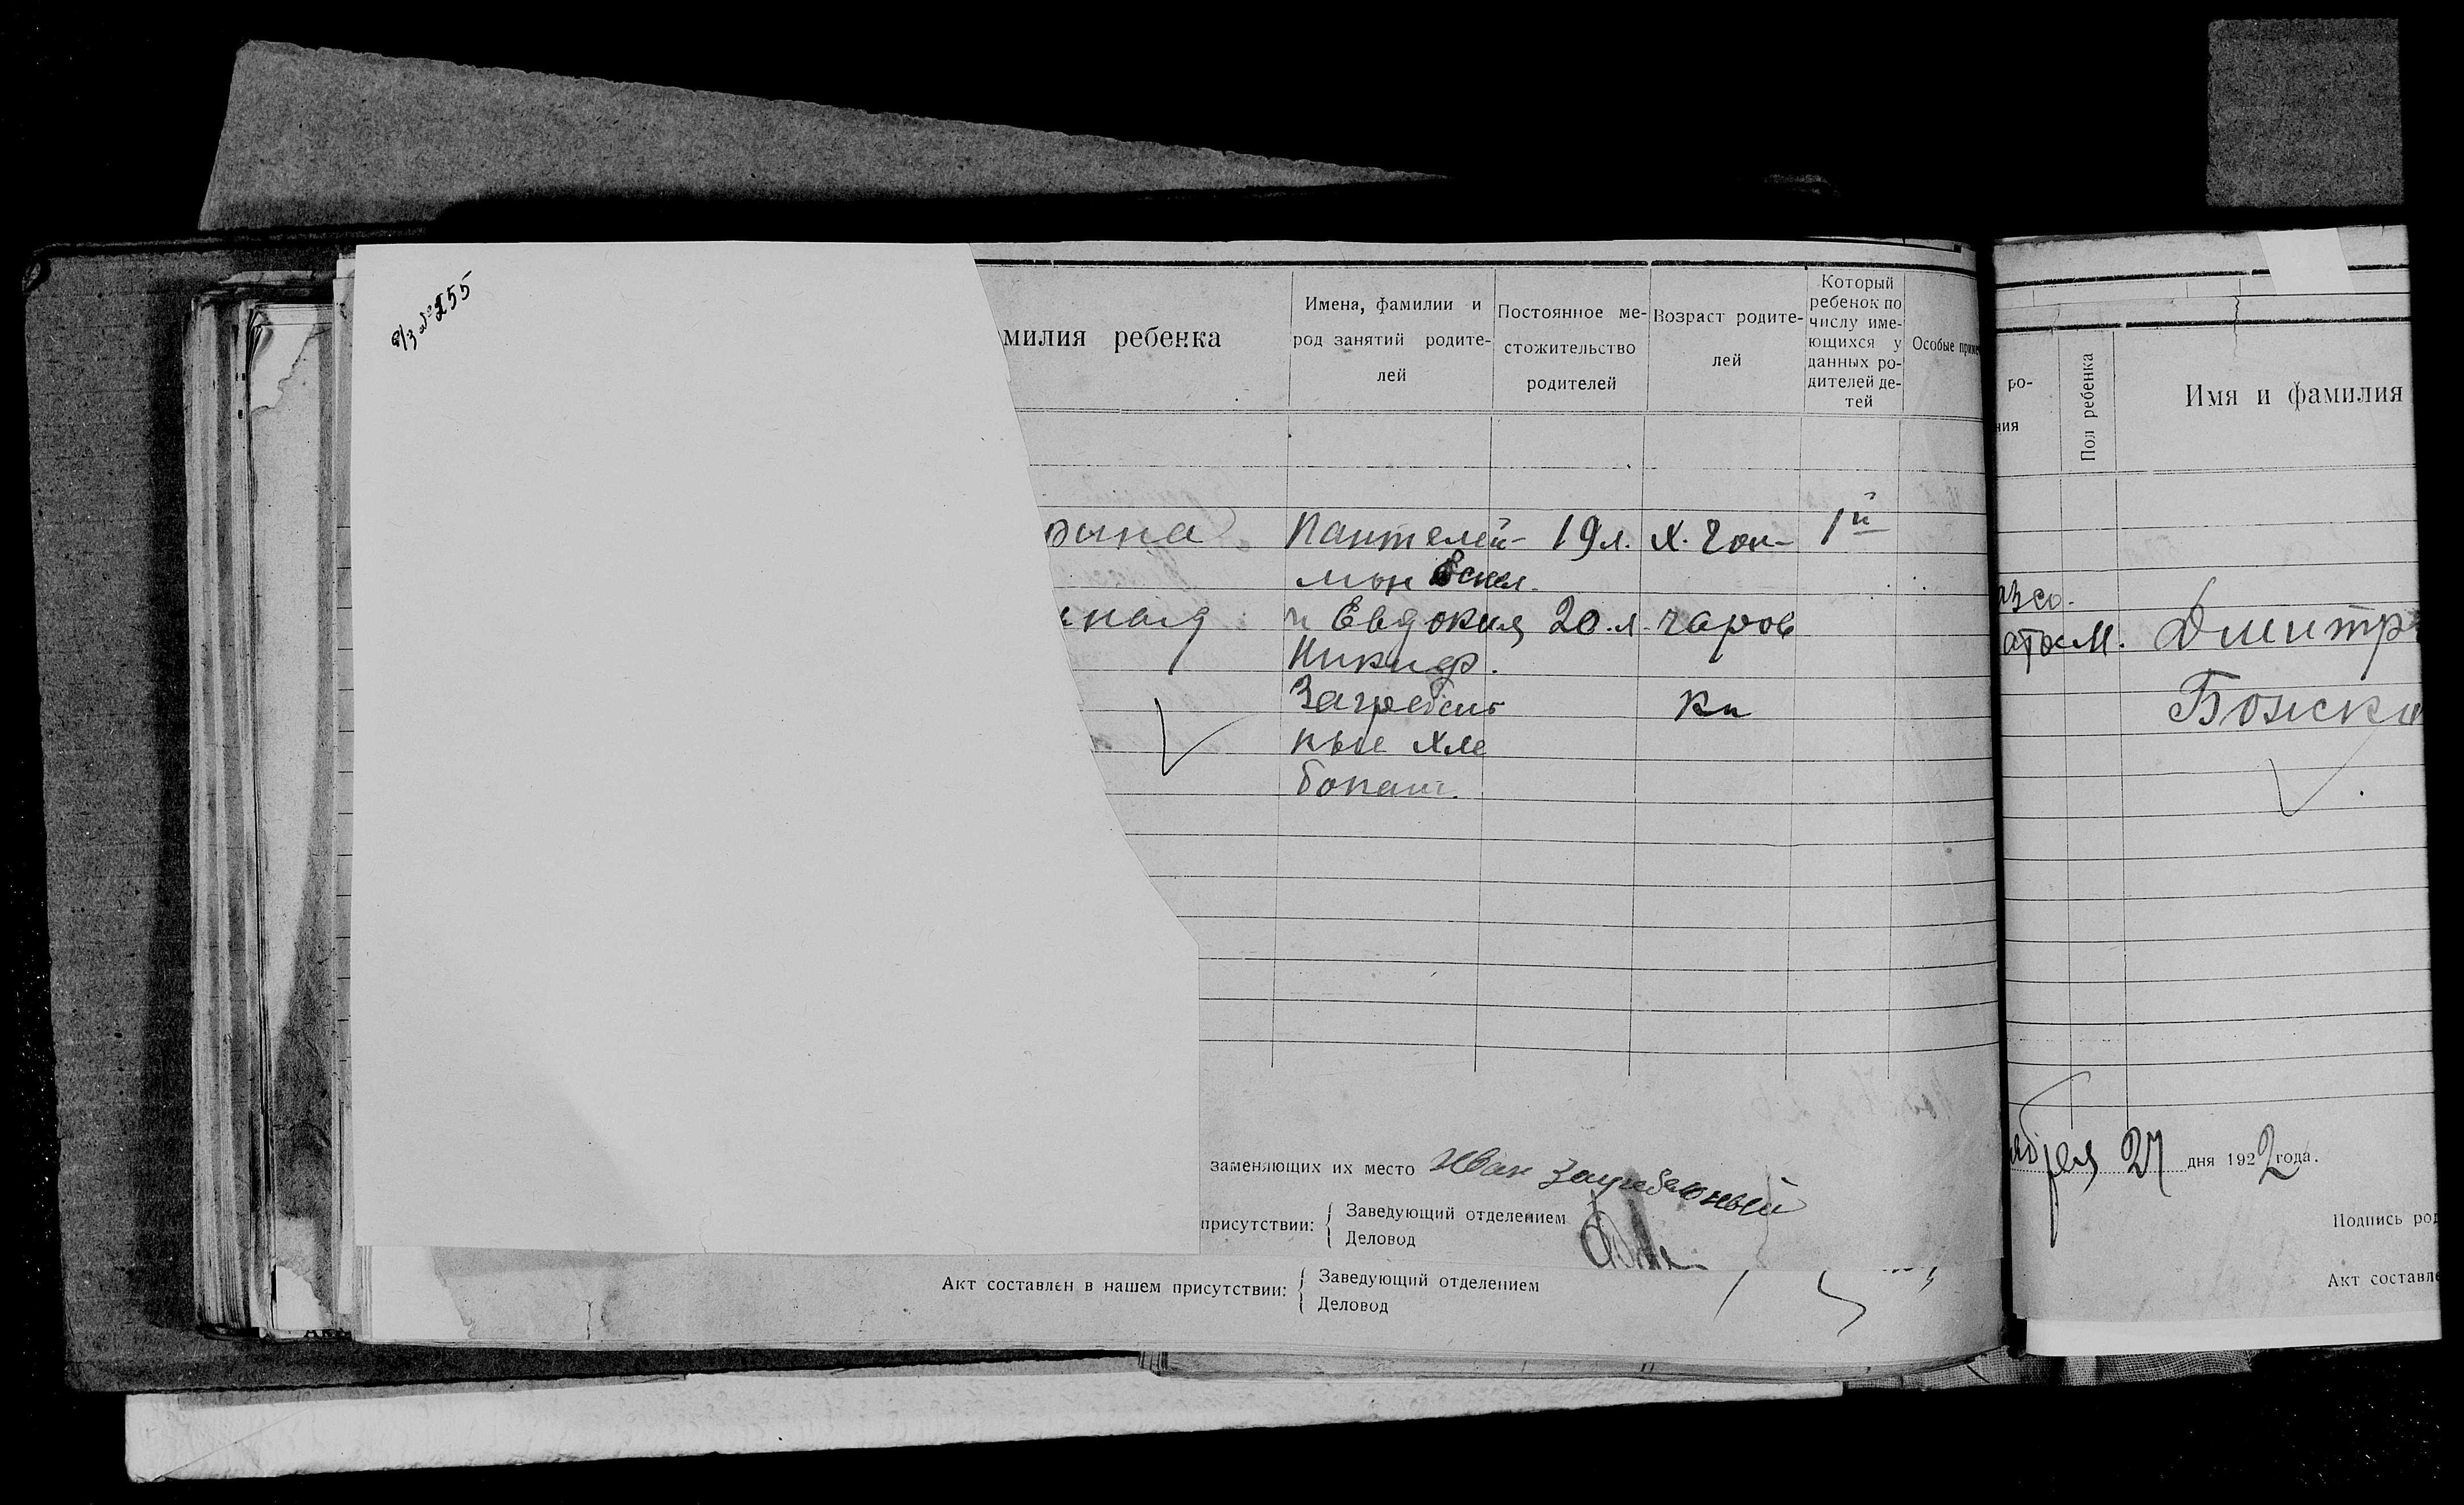 № 255
милия ребенка
Имена, фамилии и
род занятий родите-
лей
Постоянное ме-
стожительство
родителей
Возраст родите-
лей
Который
ребенок по
числу име-
ющихся у
данных ро-
дителей де-
тей
Особые приме
рина Пантелей- 19 л. х. Гон- 1й
мон
и Евдокия 20 л. чаров
Никиф. 
Загребель ки
ные хле
бопаш.
заменяющих их место Иван Загребельный
присутствии: Заведующий отделением
Деловод
Акт составлен в нашем присутствии: Заведующий отделением
Деловод
ро-
ния
Пол ребенка
Имя и фамилия
М. Дмитр
Божск
ября 27 дня 1922 года.
Подпись род
Акт составле